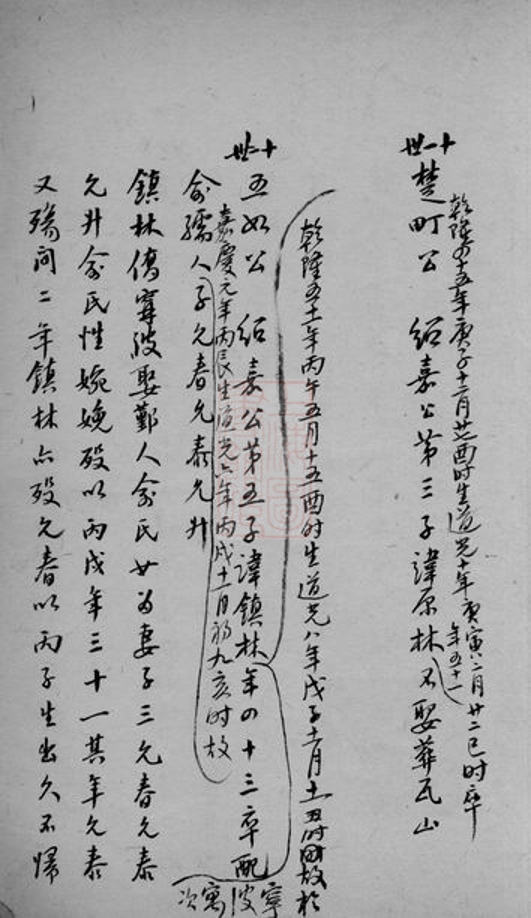 乾隆四十五年庚子十二月廿酉时生道光十年庚寅二月廿二巳时卒
年五十一
十一世
楚町公 绍嘉公第三子諱原林不娶葬瓦山
乾隆五十一年丙午五月十五酉时生道光八年戊子十一月十一丑时故於
寧波寓次
十一世
五如公 绍嘉公第五子諱鎮林年四十三卒配
嘉慶元年丙辰生道光六年丙戌十一月初九亥时故
俞孺人子允春允泰允升
鎮林傭寧波娶鄞人俞氏女为妻子三允春允泰
允升俞氏性婉娩殁以丙戌年三十一其年允泰
又殤间二年鎮林亦殁允春以丙子生出久不歸